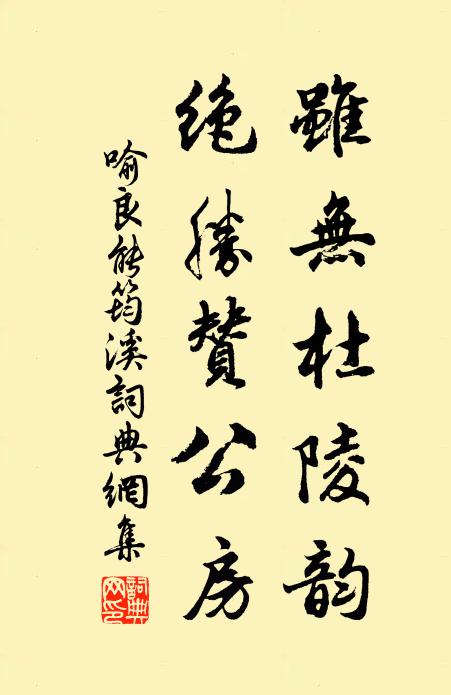 雖無杜陵韵
絶勝賛公房
喻良能筠溪詞典網集
詞典网印